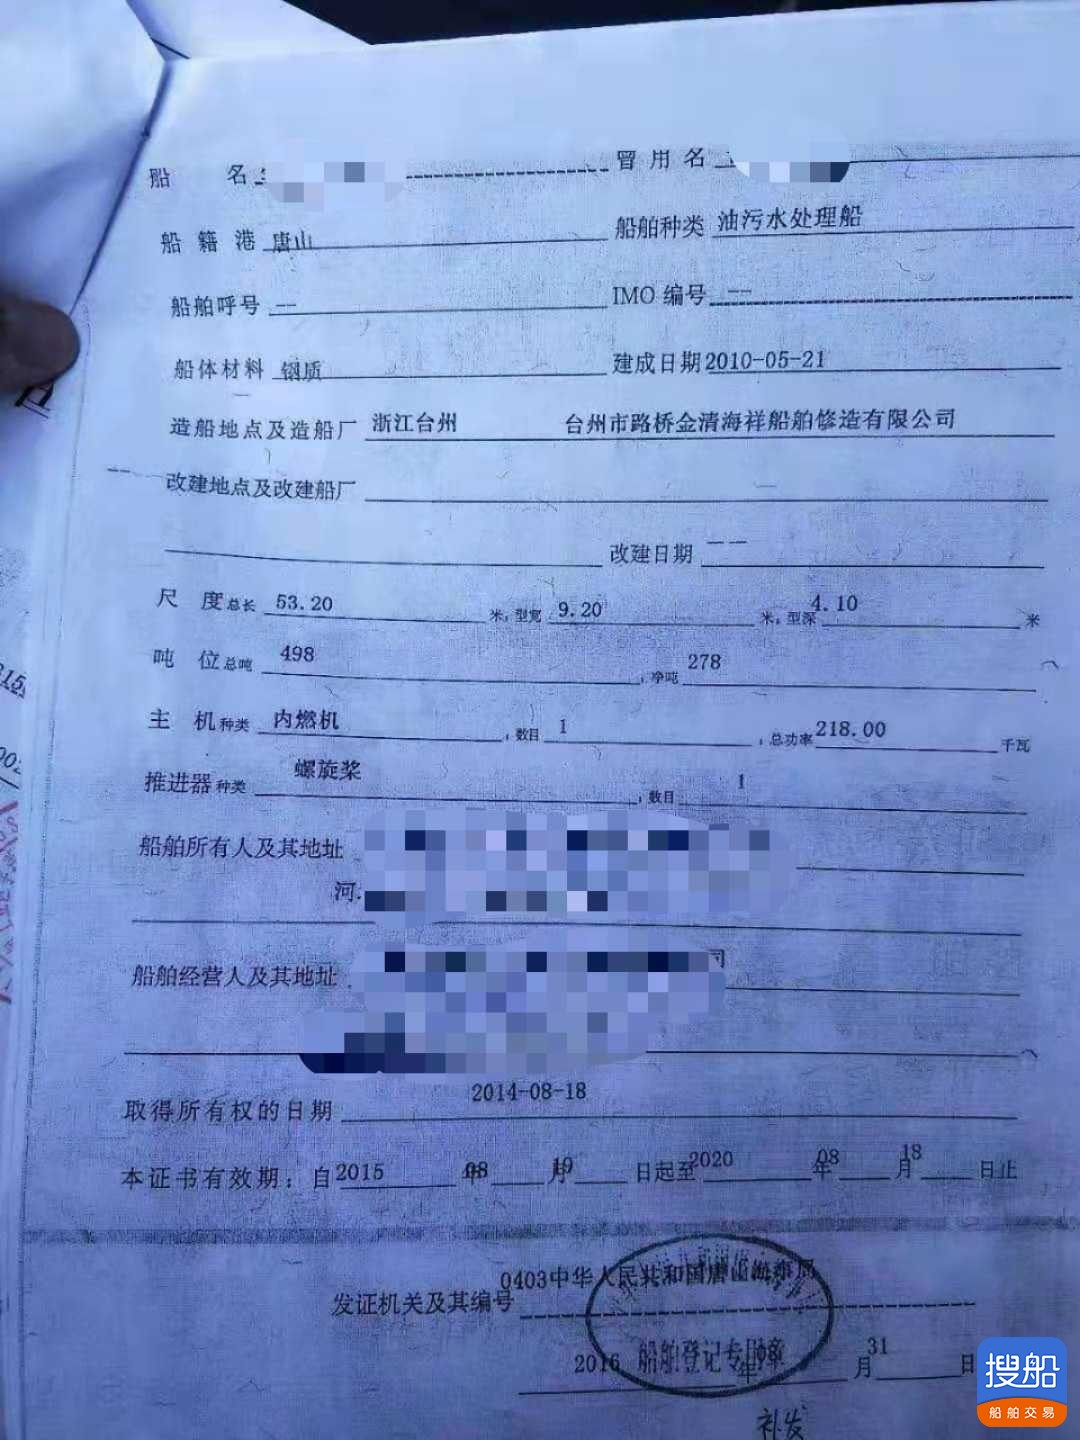 船 名 曾用名
船籍港 唐山 船舶种类 油污水处理船
船舶呼号 -- IMO 编号 --
船体材料 钢质 建成日期 2010-05-21
造船地点及造船厂 浙江台州 台州市路桥金清海祥船舶修造有限公司
-- 改建地点及改建船厂
改建日期 --
尺 度 总长 53.20 米，型宽 9.20 米，型深 4.10 米
吨 位 总吨 498 ，净吨 278
主 机 种类 内燃机 ，数目 1 ，总功率 218.00 千瓦
推进器 种类 螺旋桨 ，数目 1
船舶所有人及其地址
河
船舶经营人及其地址 司
取得所有权的日期 2014-08-18
本证书有效期：自 2015 年 08 月 19 日起至 2020 年 08 月 18 日止
0403中华人民共和国唐山海事局
发证机关及其编号
船舶登记专用章
2016 年 08 月 31 日
补发
搜船
船舶交易